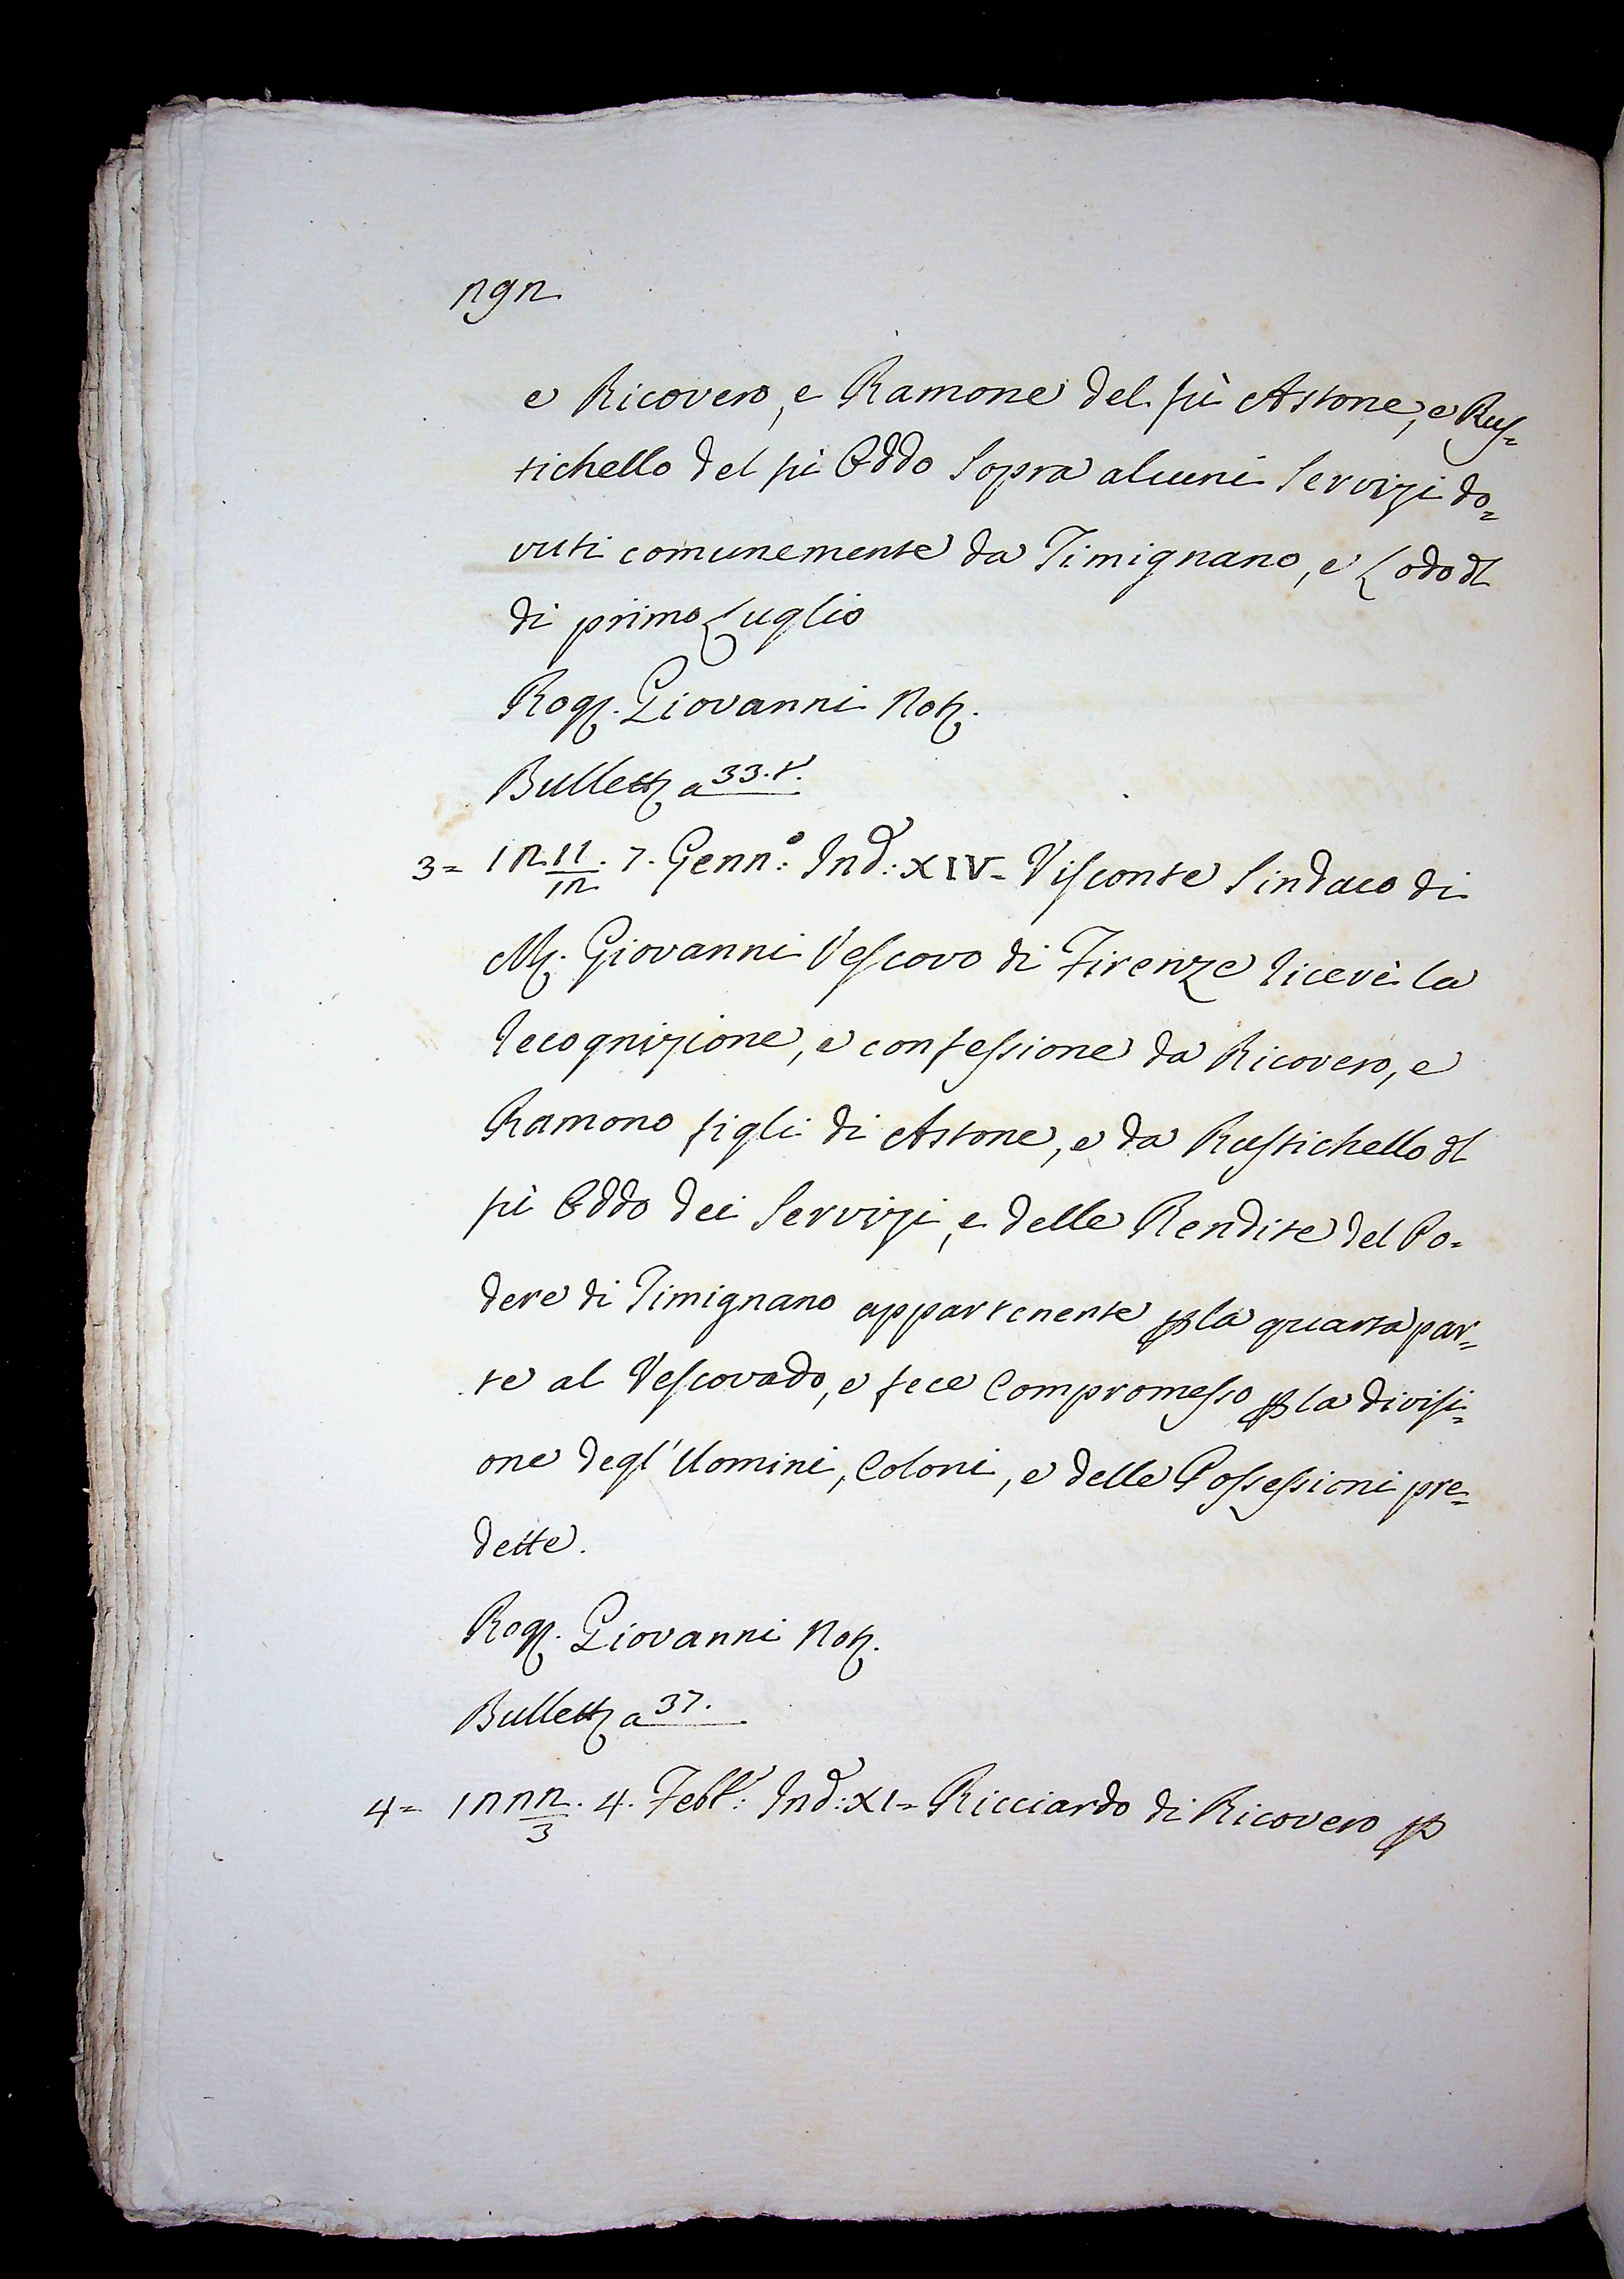 292
e Ricovero, e Ramone del fù Astone, e Rus=
tichello del fù Oddo sopra alcuni servizj do=
vuti comunemente da Timignano, e Lodo dl
dì primo Luglio
Rog. Giovanni Not.
Bullett. a 33.t.
3= 1211/12. 7. Genn.º: Ind: XIV= Visconte Sindaco di
M. Giovanni Vescovo di Firenze ricevè la
recognizione, e confessione da Ricovero, e
Ramono figli di Astone, e da Rustichello dl
fù Oddo dei servizj, e delle Rendite del Po=
dere di Timignano appartenente p la quarta par=
te al Vescovado, e fece Compromesso p la divisi=
one degl' Uomini, Coloni, e delle Possessioni pre=
dette.
Rog. Giovanni Not.
Bullett. a 37.
4= 1222/3. 4. Febb: Ind: XI= Ricciardo di Ricovero p